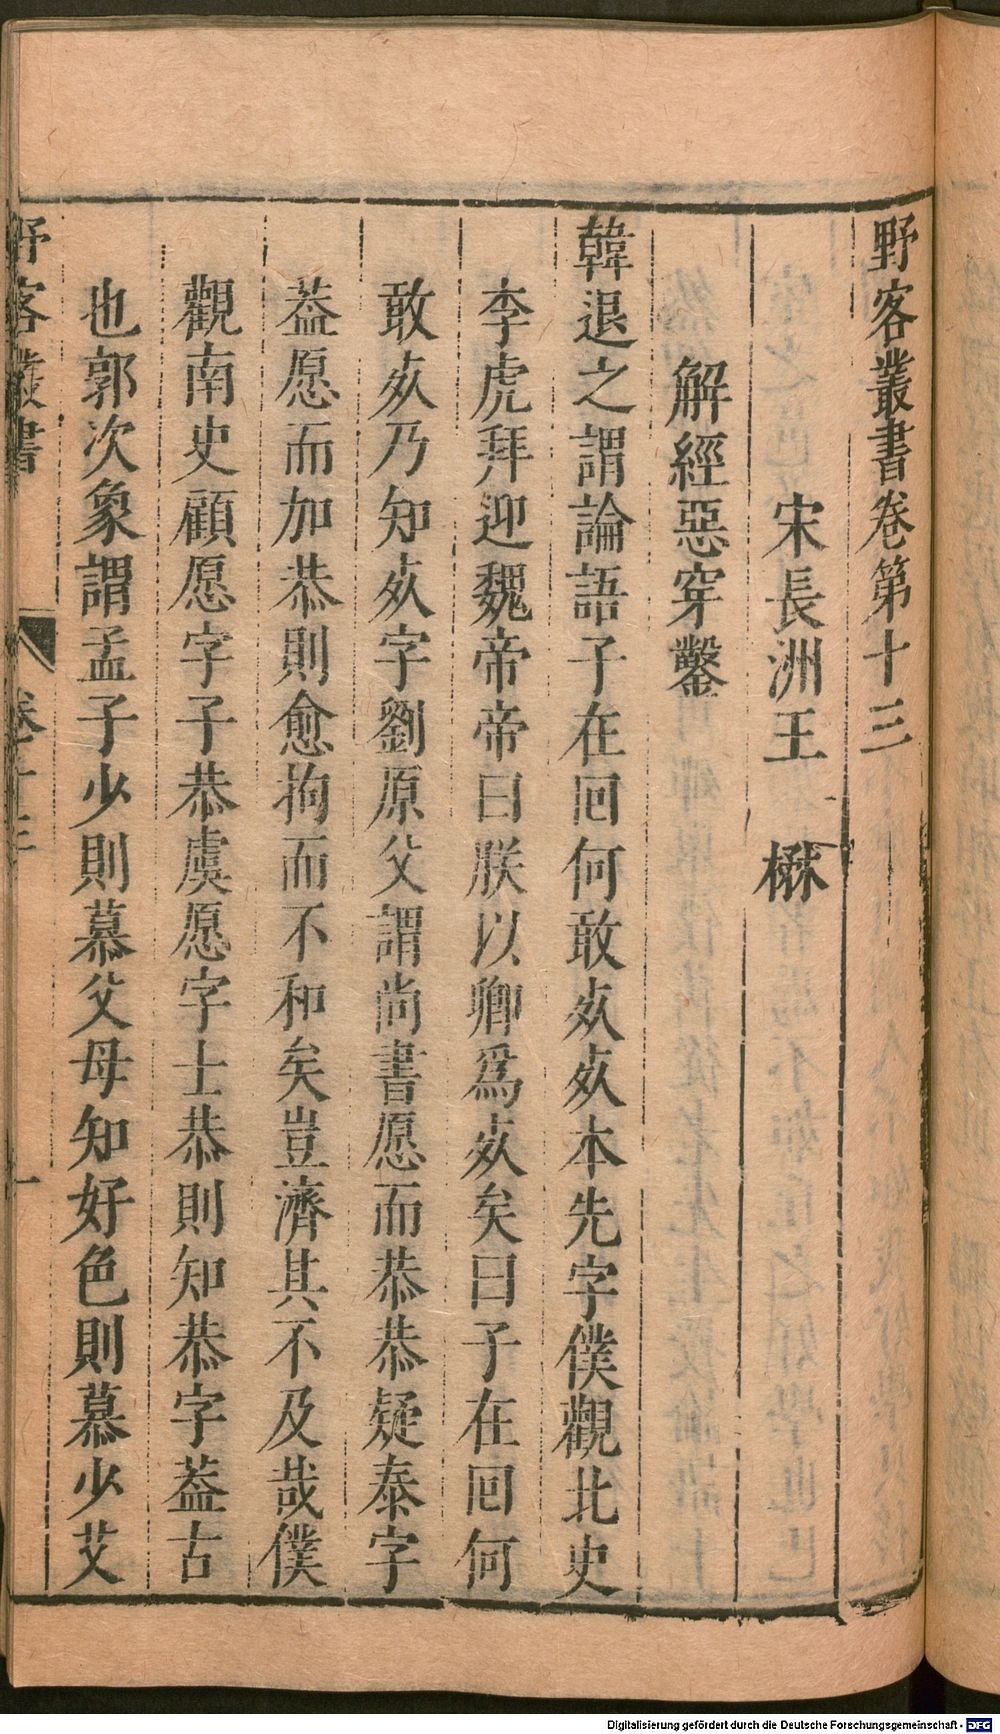 野客叢書卷第十三
宋長洲王 楙
解經惡穿鑿
韓退之謂論語子在囘何敢㱙㱙本先字僕觀北史
李虎拜迎魏帝帝曰朕以卿爲㱙矣曰子在囘何
敢㱙乃知㱙字劉原父謂尚書愿而恭恭疑泰字
葢愿而加恭則愈拘而不和矣豈濟其不及哉僕
觀南史顧愿字子恭虞愿字士恭則知恭字葢古
也郭次象謂孟子少則慕父母知好色則慕少艾
野客叢書 卷十三 一
Digitalisierung gefördert durch die Deutsche Forschungsgemeinschaft - DFG